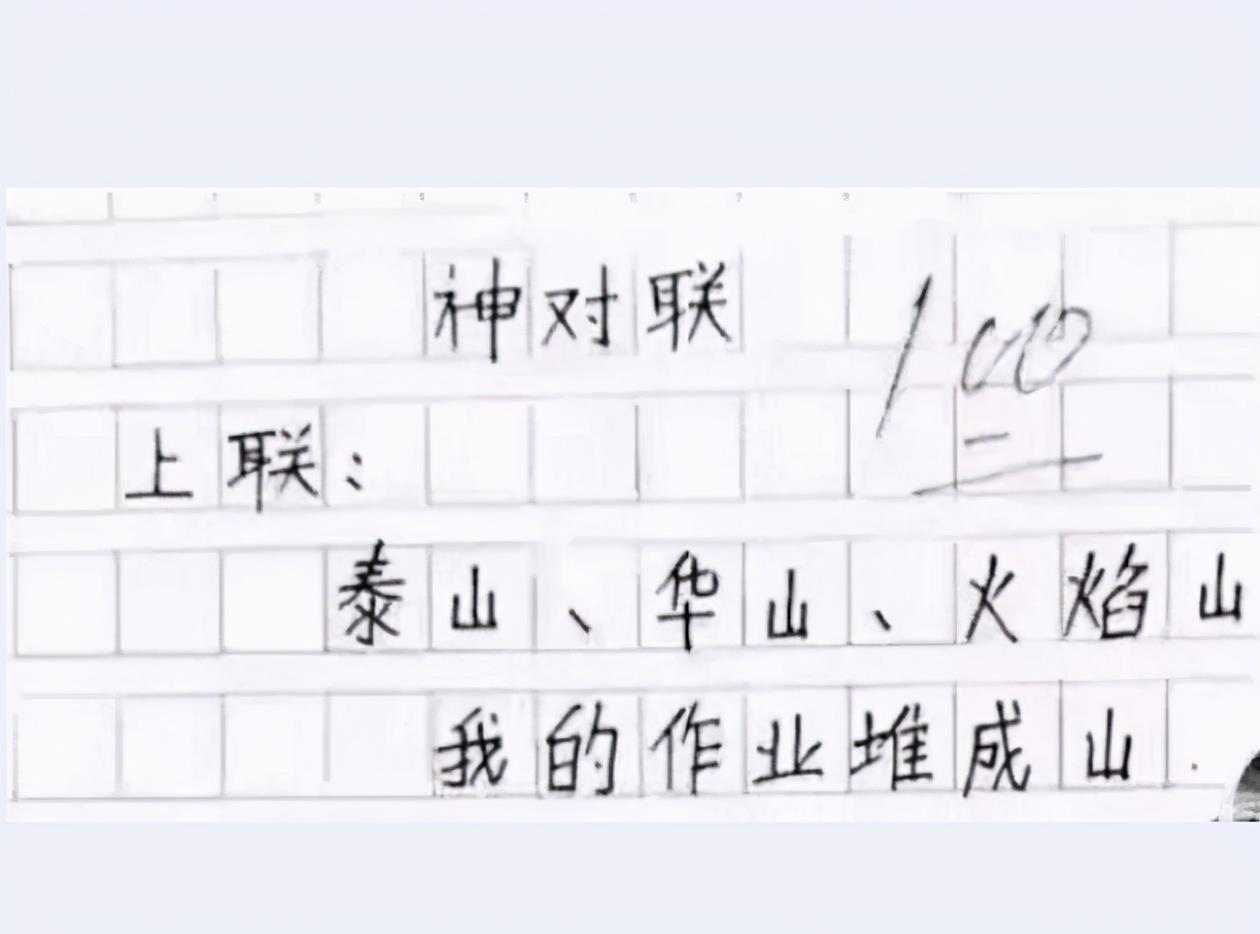 神对联
100
上联:
泰山、华山、火焰山
我的作业堆成山.